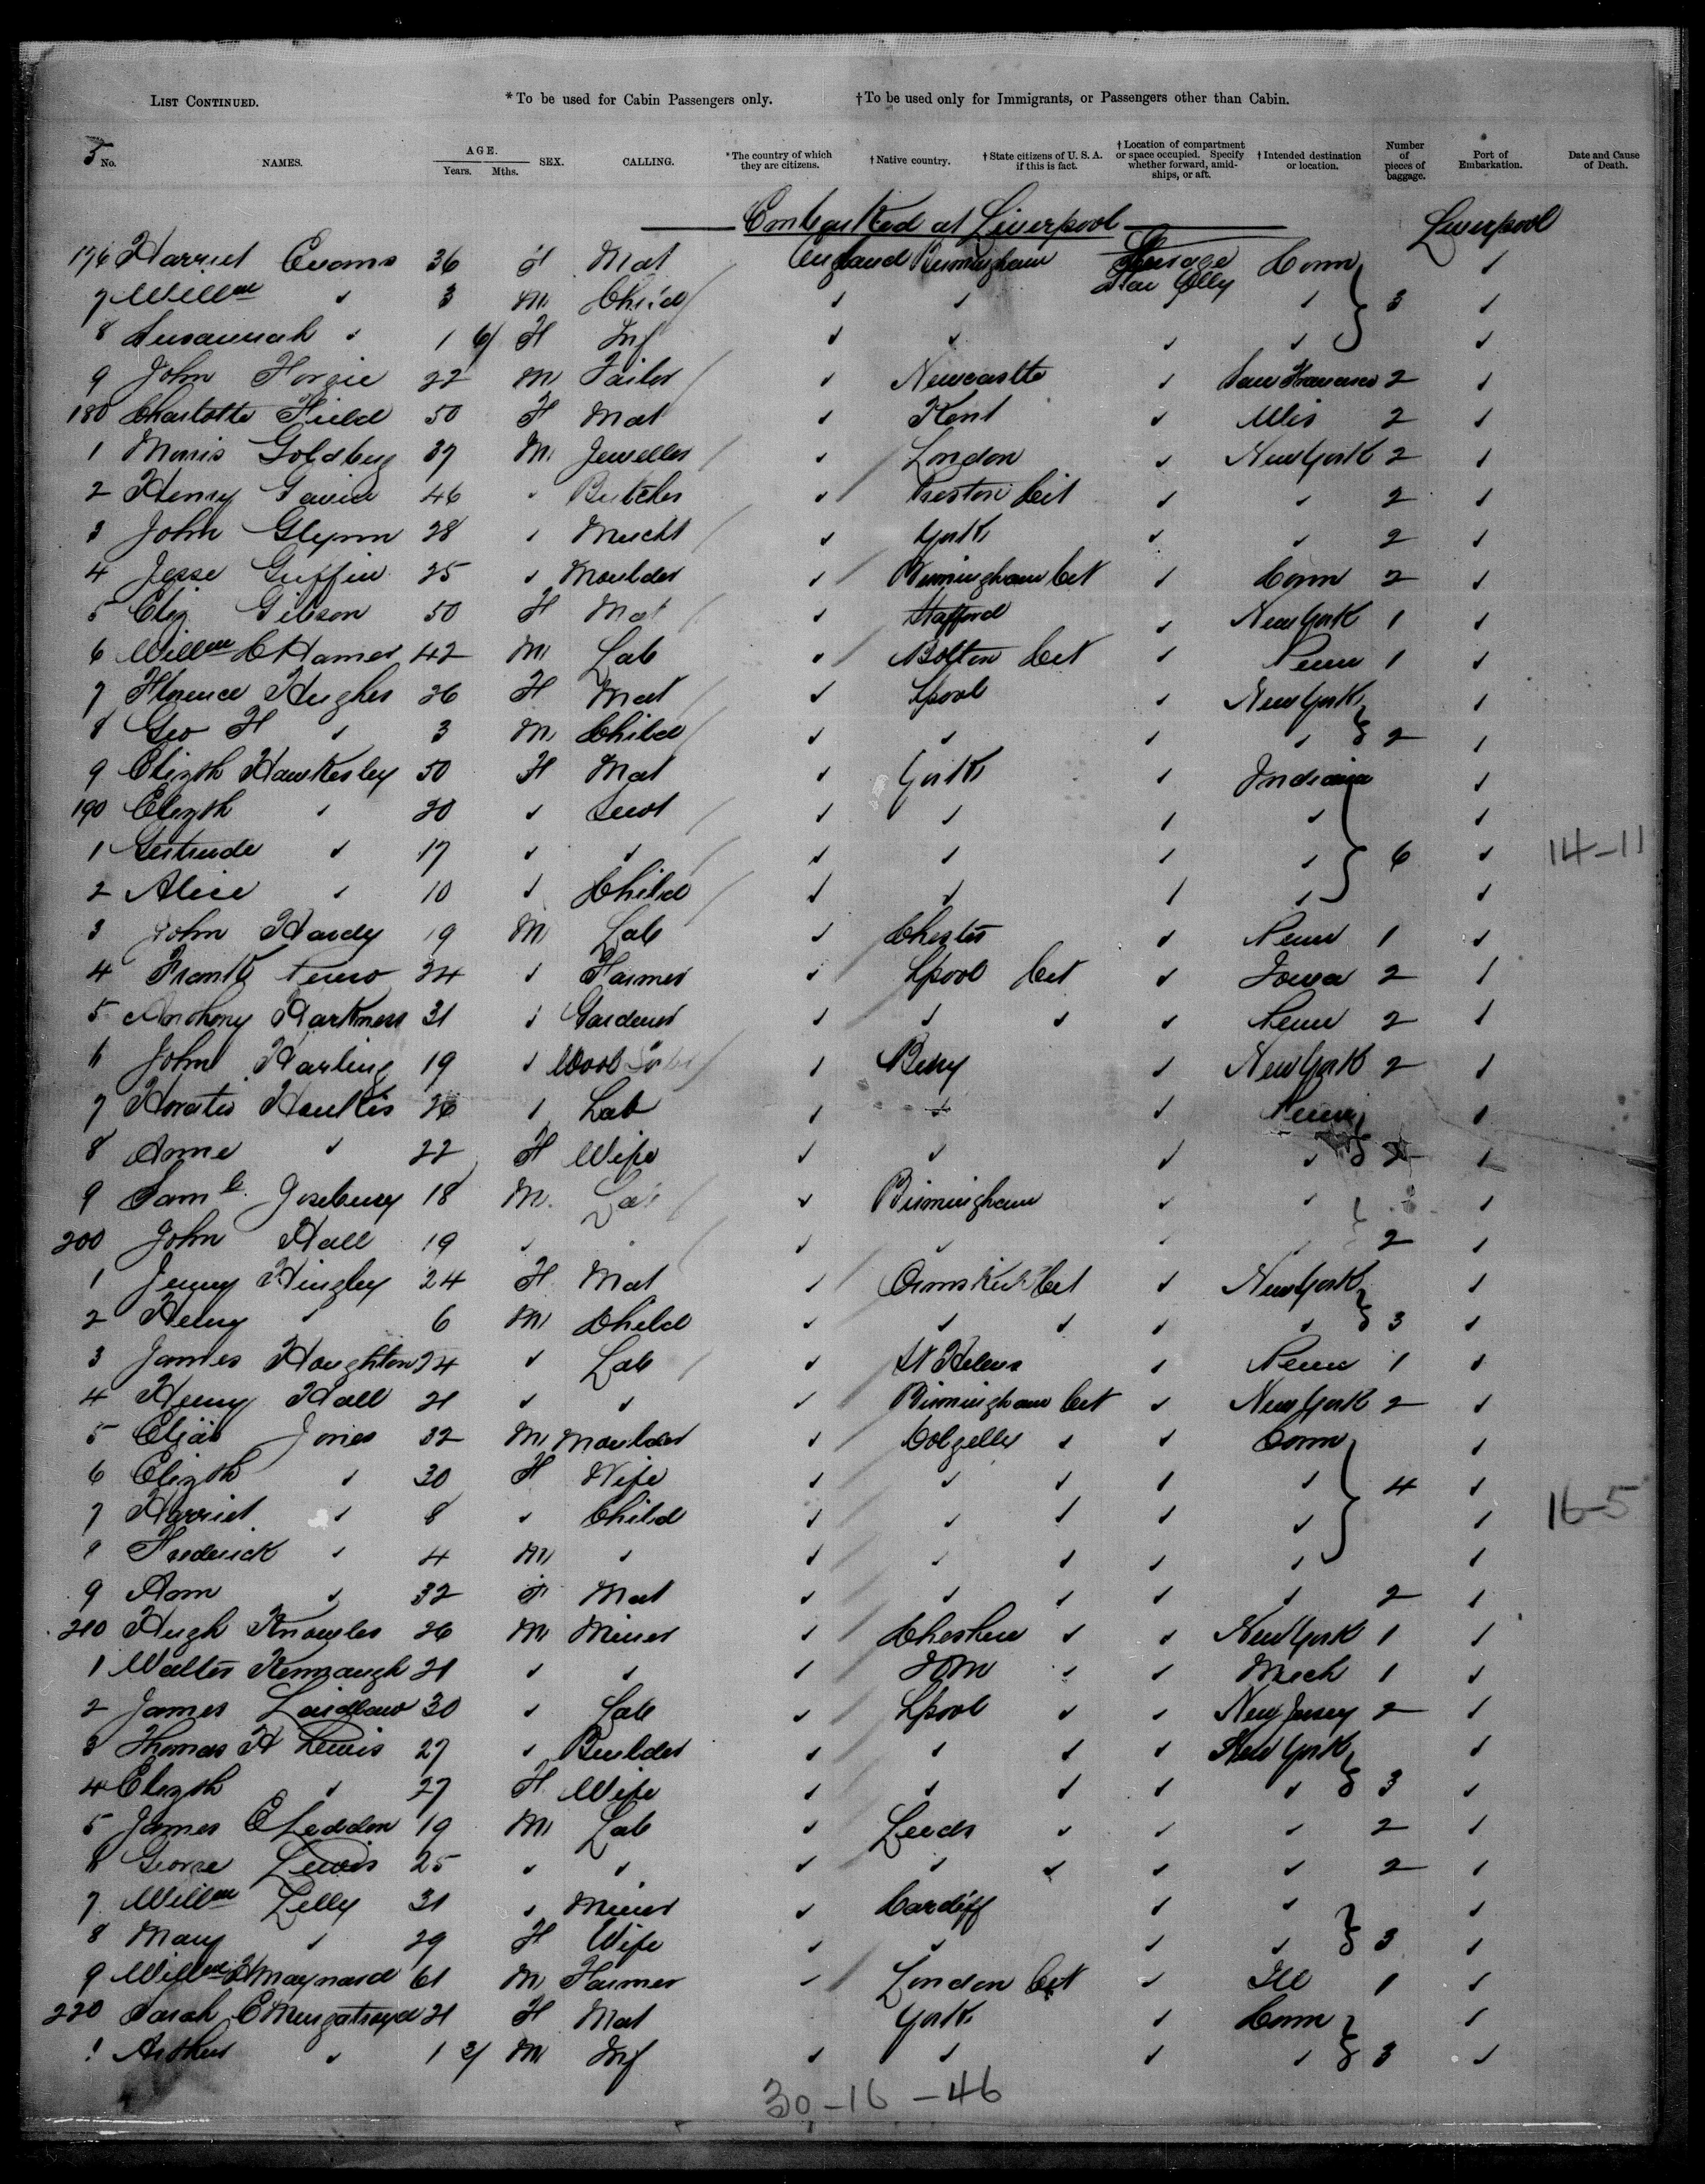 LIST CONTINUED. *To be used for Cabin Passengers only. †To be used only for Immigrants, or Passengers other than Cabin.
5
No. NAMES. AGE. Years. Mths. SEX. CALLING. *The country of which they are citizens. †Native country. †State citizens of U. S. A. if this is fact. †Location of compartment or space occupied. Specify whether forward, amidships, or aft. †Intended destination or location. Number of pieces of baggage. Port of Embarkation. Date and Cause of Death.
Embarked at Liverpool Liverpool
176 Harriet Evans 36 F Mat England Birmingham Steerage Conn ✓
7 Willm ✓ 3 M Child ✓ ✓ ✓ ✓ 3 ✓
8 Susannah ✓ 1 6/ F Inf ✓ ✓ ✓ ✓ ✓
9 John 22 M Tailor ✓ Newcastle ✓ San Francisco 2 ✓
180 Charlotte Field 50 F Mat ✓ Kent ✓ Wis 2 ✓
1 Morris Goldberg 37 M Jeweller ✓ London ✓ New York 2 ✓
2 Henry 46 ✓ Butcher ✓ Preston Cit ✓ ✓ 2 ✓
3 John Glynn 28 ✓ Mercht ✓ York ✓ ✓ 2 ✓
4 Jesse Griffin 25 ✓ Moulder ✓ Birmingham Cit ✓ Conn 2 ✓
5 Eliz Gibson 50 F Mat ✓ Stafford ✓ New York 1 ✓
6 Willm C Hamer 42 M Lab ✓ Bolton Cit ✓ Penn 1 ✓
7 Florence Hughes 26 F Mat ✓ Lpool ✓ New York ✓
8 Geo H ✓ 3 M Child ✓ ✓ ✓ ✓ 2 ✓
9 Elizth Hawkesley 50 F Mat ✓ York ✓ Indiana ✓
190 Elizth ✓ 20 ✓ Servt ✓ ✓ ✓ ✓ ✓
1 Gertrude ✓ 17 ✓ ✓ ✓ ✓ ✓ ✓ 6 ✓ 14-11
2 Alice ✓ 10 ✓ Child ✓ ✓ ✓ ✓ ✓
3 John Hardy 19 M Lab ✓ Chester ✓ Penn 1 ✓
4 Frank 24 ✓ Farmer ✓ Lpool Cit ✓ Iowa 2 ✓
5 Anthony Harkness 31 ✓ Gardener ✓ ✓ ✓ ✓ Penn 2 ✓
6 John Harling 19 ✓ Wool ✓ ✓ New York 2 ✓
7 Horatio 26 ✓ Lab ✓ ✓ ✓ Penn ✓
8 Anne ✓ 22 F Wife ✓ ✓ ✓ ✓ 2 ✓
9 Saml 18 M Lab ✓ Birmingham ✓ ✓ ✓
200 John Hall 19 ✓ ✓ ✓ ✓ ✓ ✓ 2 ✓
1 Jenny Hingley 24 F Mat ✓ Ormskirk Cit ✓ New York ✓
2 Henry ✓ 6 M Child ✓ ✓ ✓ ✓ ✓ 3 ✓
3 James Houghton 24 ✓ Lab ✓ St Helens ✓ Penn 1 ✓
4 Henry Hall 21 ✓ ✓ ✓ Birmingham Cit ✓ New York 2 ✓
5 Elijah Jones 32 M Moulder ✓ Dolgelley ✓ ✓ Conn ✓
6 Elizth ✓ 30 F Wife ✓ ✓ ✓ ✓ ✓ 4 ✓
7 Harriet ✓ 8 ✓ Child ✓ ✓ ✓ ✓ ✓ ✓ 16-5
8 Frederick ✓ 4 M ✓ ✓ ✓ ✓ ✓ ✓ ✓
9 Ann ✓ 32 F Mat ✓ ✓ ✓ ✓ ✓ 2 ✓
210 Hugh Knowles 26 M Miner ✓ Cheshire ✓ ✓ New York 1 ✓
1 Walter 21 ✓ ✓ ✓ IOM ✓ ✓ Mich 1 ✓
2 James Laidlaw 30 ✓ Lab ✓ Lpool ✓ ✓ New Jersey 2 ✓
3 Thomas H Lewis 27 ✓ Builder ✓ ✓ ✓ ✓ New York ✓
4 Elizth ✓ 27 F Wife ✓ ✓ ✓ ✓ ✓ 3 ✓
5 James E Leddon 19 M Lab ✓ Leeds ✓ ✓ ✓ 2 ✓
6 George Lewis 25 ✓ ✓ ✓ ✓ ✓ ✓ ✓ 2 ✓
7 Willm Lelly 31 ✓ Miner ✓ Cardiff ✓ ✓ ✓
8 Mary ✓ 29 F Wife ✓ ✓ ✓ ✓ 3 ✓
9 Willm H Maynard 61 M Farmer ✓ London Cit ✓ Ill 1 ✓
220 Sarah E Murgatroyd 21 F Mat York ✓ Conn ✓
1 Arthur ✓ 1 2/ M Inf ✓ ✓ ✓ ✓ 3 ✓
30-16-46